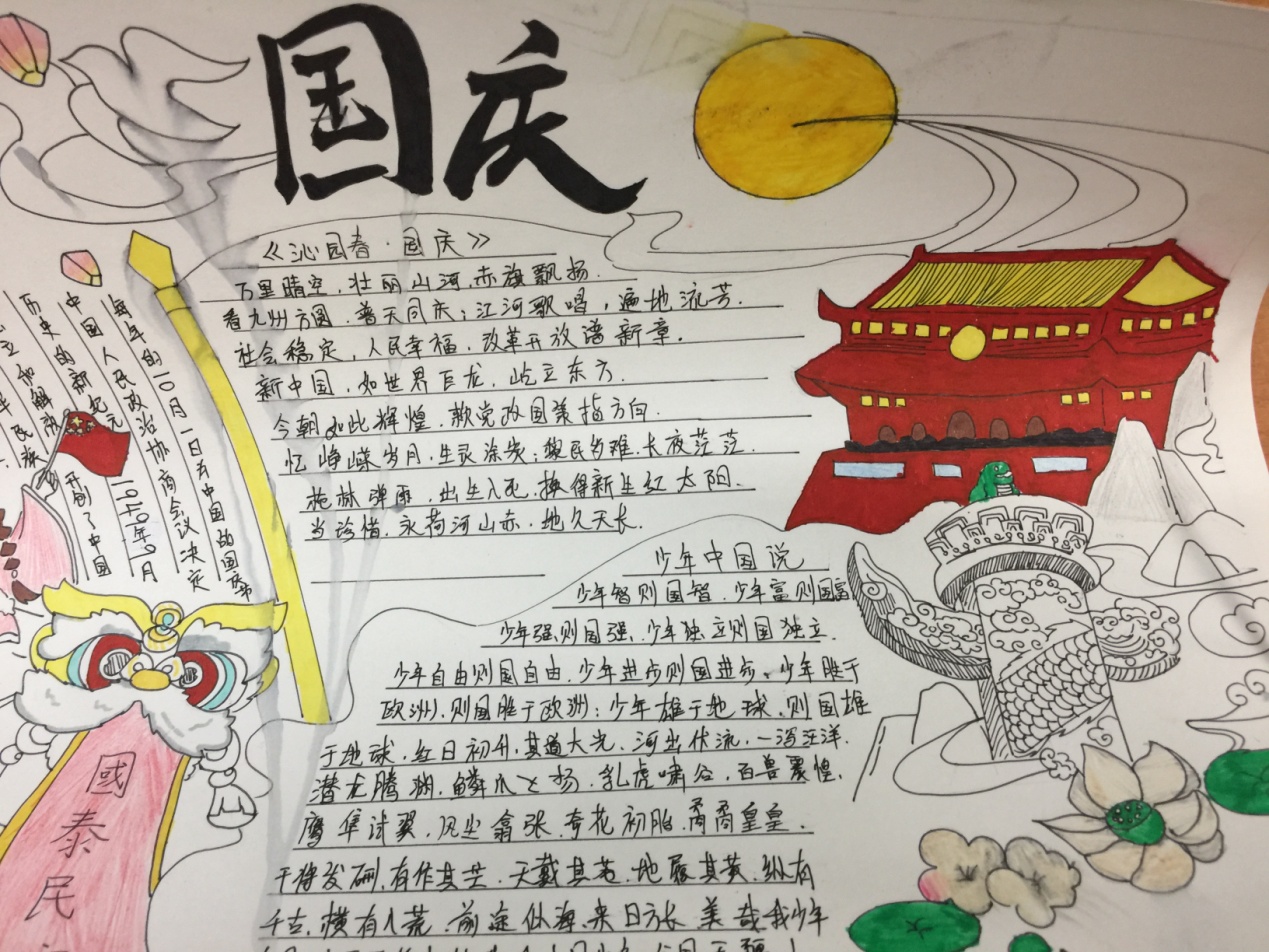 国庆
《沁园春·国庆》
万里晴空，壮丽山河，赤旗飘扬．
看九州方圆．普天同庆；江河歌唱，遍地流芳．
社会稳定，人民幸福．改革开放谱新章．
新中国，如世界巨龙，屹立东方．
今朝如此辉煌．歌党政国策指方向．
忆峥嵘岁月，生灵涂炭；民多难．长夜茫茫．
林弹雨，出生入死．换得新生红太阳．
当珍惜．永河山赤．地久天长．
少年中国说
少年智则国智．少年富则国富
少年强则国强、少年独立则国独立．
少年自由则国自由．少年进步则国进步、少年胜于
欧洲，则国胜于欧洲；少年雄于地球．则国雄
于地球．红日初升．其道大光．河出伏流，一泻汪洋．
潜龙腾渊．鳞爪飞扬．乳虎啸谷，百兽震惶．
鹰隼试翼．风尘翕张．奇花初胎．矞矞皇皇．
干将发硎．有作其芒．天戴其苍．地履其黄．纵有
千古．横有八荒．前途似海．来日方长．美哉我少年
每年的10月1日为中国的国庆节
中国人民政治协商会议决定
历史的新纪元 1949年9月
立和解放 开创了中国
民族
國泰民